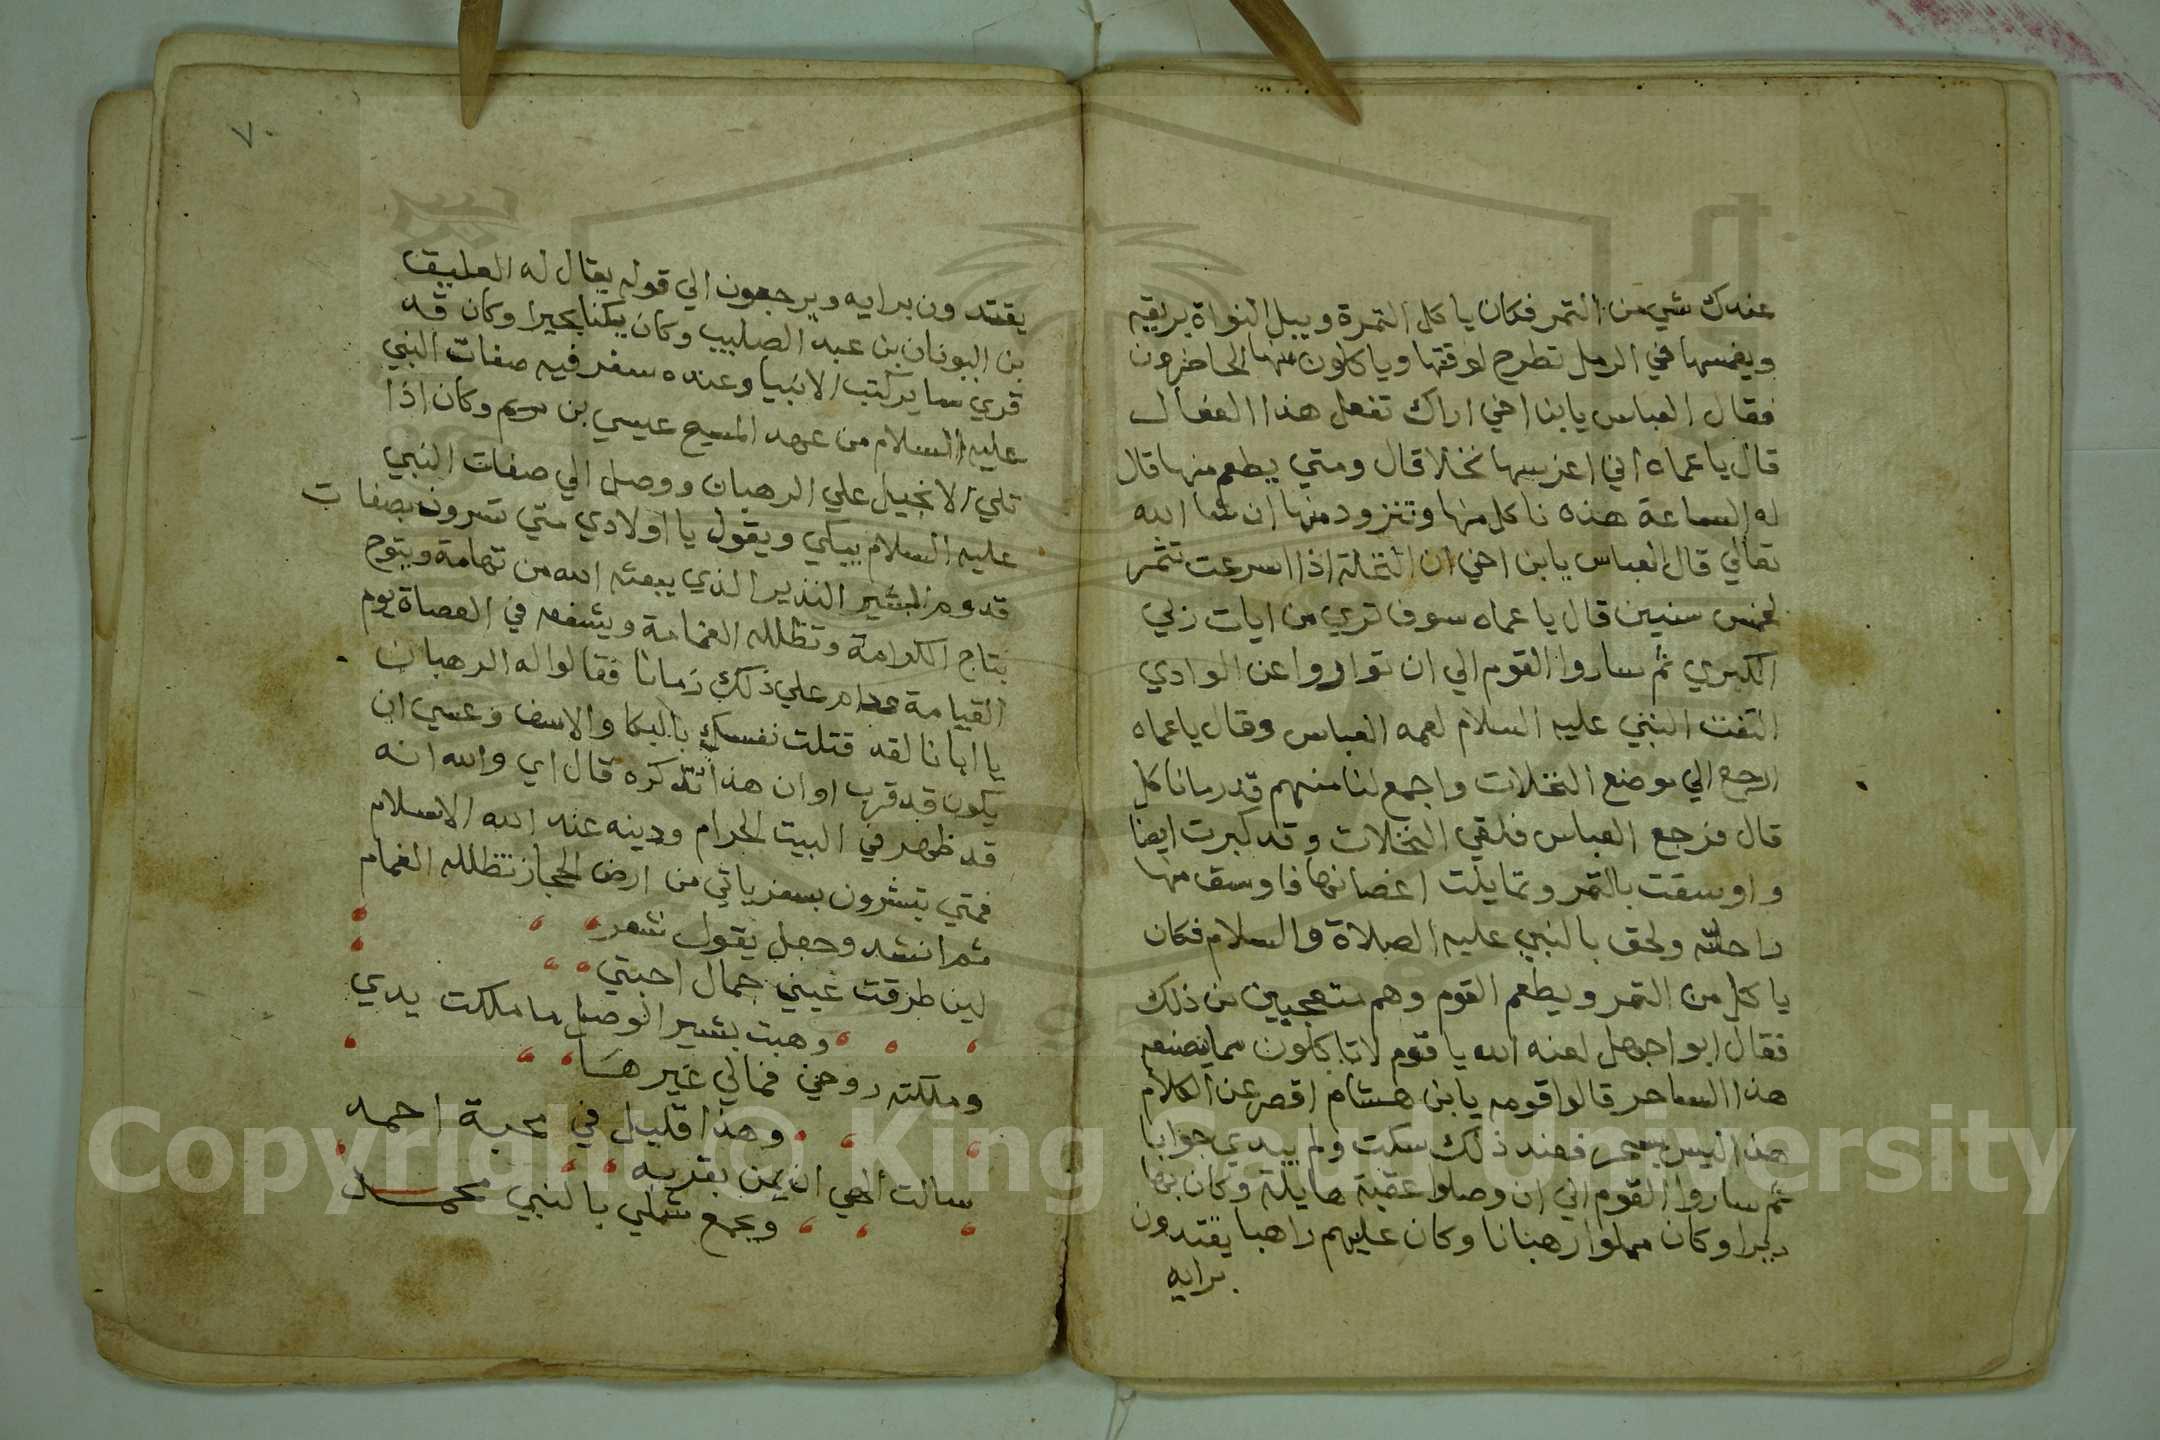 عندك شي من التمر فكان ياكل التمرة ويبل النواة بريقه
ويغمسها في الرمل تطرح لوقتها وياكلون منها الحاضرون
فقال العباس يابنا اخي اراك تفعل هذا الفعال
قال ياعماه اني اغرسها نخلا قال ومتي يطعم منها قال
له الساعة هذه ناكل منها ونتزود منها ان شا الله
تعالي قال العباس يابن اخي ان النخلة اذا اسرعت تثمر
لخمس سنيين قال ياعماه سوف تري من ايات ربي
الكبري ثم ساروا القوم الي ان تواروا عن الوادي
التفت النبي عليه السلام لعمه العباس وقال ياعماه
ارجع الي موضع النخلات واجمع لنا منهم قدر مانا كل
قال فرجع العباس فلقي النخلات وقد كبرت ايضا
و اوسقت بالتمر وتمايلت اغصانها فاوسق منها
راحلته ولحق بالنبي عليه الصلاة والسلام فكان
ياكل من التمر ويطعم القوم وهم متعجبين من ذلك
فقال ابواجهل لعنه الله يا قوم لاتاكلون مما يصنع
هذا الساحر قالوا قومه يابن هشام اقصر عن الكلام
هذا ليس بسحر فعند ذلك سكت ولم يبدي جوابا
ثم ساروا القوم الي ان وصلوا عقبة هايلة وكان بها
ديرا وكان مملوا رهبانا وكان عليهم راهبا يقتدون
برايه
٧٠
يقتدون برايه ويرجعون الي قوله يقال له العليق
بن اليونان بن عبد الصليب وكان يكنا بحيرا وكان قد
قري ساير كتب الانبيا وعنده سفر فيه صفات النبي
عليه السلام من عهد المسيح عيسي بن مريم وكان اذا
تلي الانجيل علي الرهبان ووصل الي صفات النبي
عليه السلام يبكي ويقول يا اولادي متي تسرون بصفات
قدوم البشير النذير الذي يبعثه الله من تهامة ويتوج
بتاج الكرامة وتظلله الغمامة ويشفعه في العصاة يوم
القيامة علي ذلك زمانا فقالوا له الرهبان
يا ابانا لقد قتلت نفسك بالبكا والاسف وعسي ان
يكون قد قرب اوان هذا تذكره قال اي والله انه
قد ظهر في البيت الحرام ودينه عند الله الاسلام
فمتي تبشرون بسفر ياتي من ارض الحجاز تظلله الغمام
ثم انشد وجعل يقول شعر
لين طرقت عيني جمال احبتي
وهبت بشير الوصل ما ملكت يدي
وملكته روحي فمالي غير هسا
وهذا قليل في محبة احمد
سالت الهي ان يمن بقربه
ويجمع شملي بالنبي محمد
Copyright © King Saud University